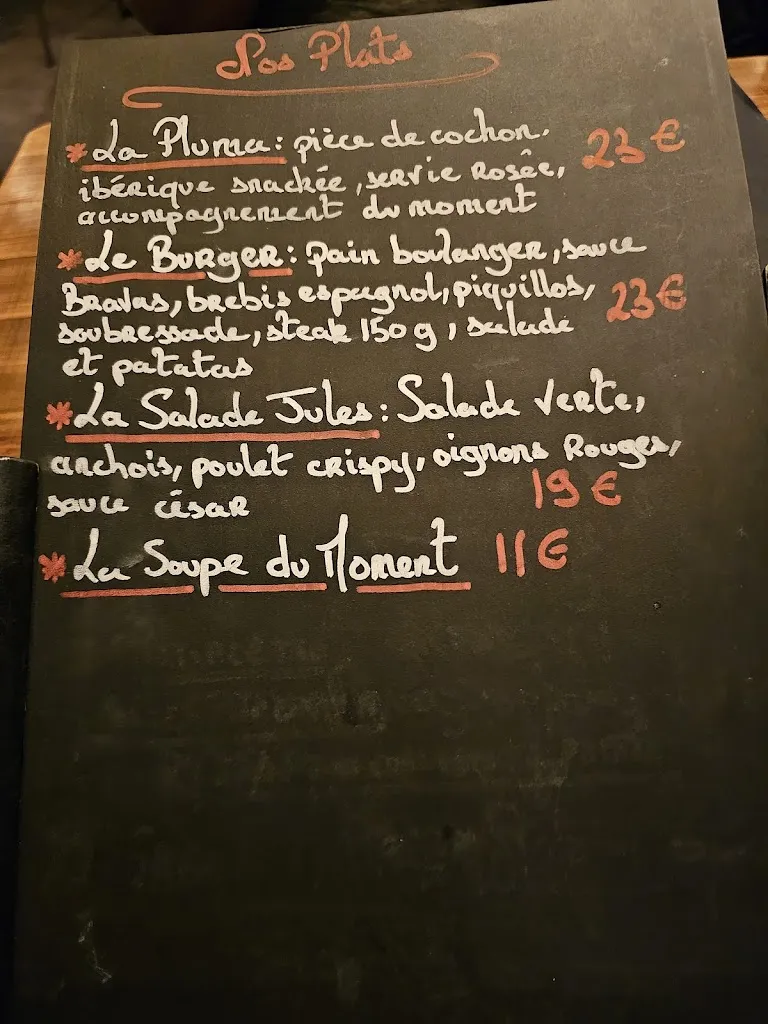 Nos Plats
* La Pluma : pièce de cochon. 23 €
ibérique snackée, servie Rosée,
accompagnement du moment
* Le Burger : pain boulanger, sauce
Bravas, brebis espagnol, piquillos, 23 €
soubressade, steak 150 g, salade
et patatas
* La Salade Jules : Salade verte,
anchois, poulet crispy, oignons Rouges,
sauce césar 19 €
* La Soupe du Moment 11 €